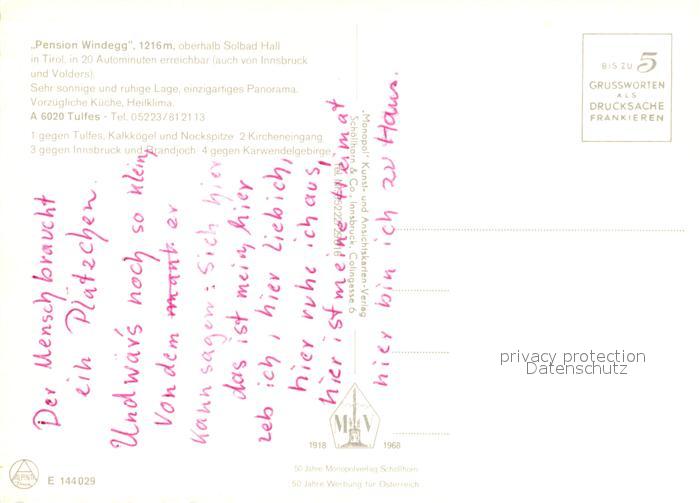 „Pension Windegg", 1216m, oberhalb Solbad Hall
in Tirol, in 20 Autominuten erreichbar (auch von Innsbruck
und Volders).
Sehr sonnige und ruhige Lage, einzigartiges Panorama.
Vorzügliche Küche, Heilklima.
A 6020 Tulfes - Tel. 05223/812113
1 gegen Tulfes, Kalkkögel und Nockspitze 2 Kircheneingang
3 gegen Innsbruck und Brandjoch 4 gegen Karwendelgebirge
BIS ZU 5
GRUSSWORTEN
ALS
DRUCKSACHE
FRANKIEREN
Der Mensch braucht
ein Plätzchen.
Und wär's noch so klein,
Von dem er
kann sagen: sich hier
das ist mein hier
leb ich, hier lieb ich,
hier ruhe ich aus,
hier ist meine Heimat
hier bin ich zu Haus.
„Monopol" Kunst- und Ansichtskarten-Verlag
Schöllhorn & Co., Innsbruck, Colingasse 6
privacy protection
Datenschutz
M V
1918 1968
50 Jahre Monopolverlag Schöllhorn
50 Jahre Werbung für Österreich
E 144029